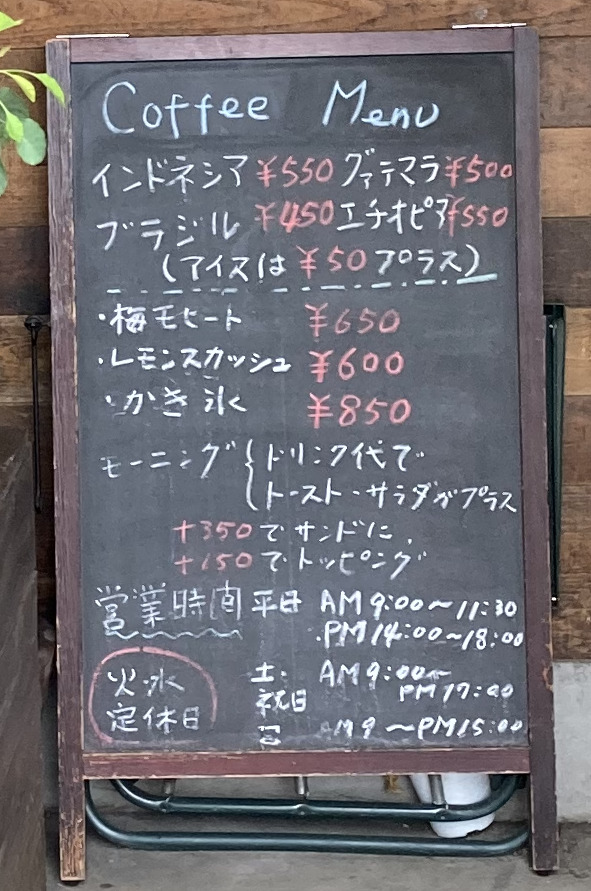 Coffee Menu
インドネシア ¥550 グァテマラ ¥500
ブラジル ¥450 エチオピア ¥550
(アイスは ¥50 プラス)
・梅モヒート ¥650
・レモンスカッシュ ¥600
・かき氷 ¥850
モーニング { ドリンク代で
トースト・サラダがプラス
+350でサンドに、
+150でトッピング
営業時間 平日 AM 9:00〜11:30
・PM 14:00〜18:00
火・水 土・ AM 9:00〜
祝日 PM 17:00
定休日 日 AM 9 〜PM 15:00